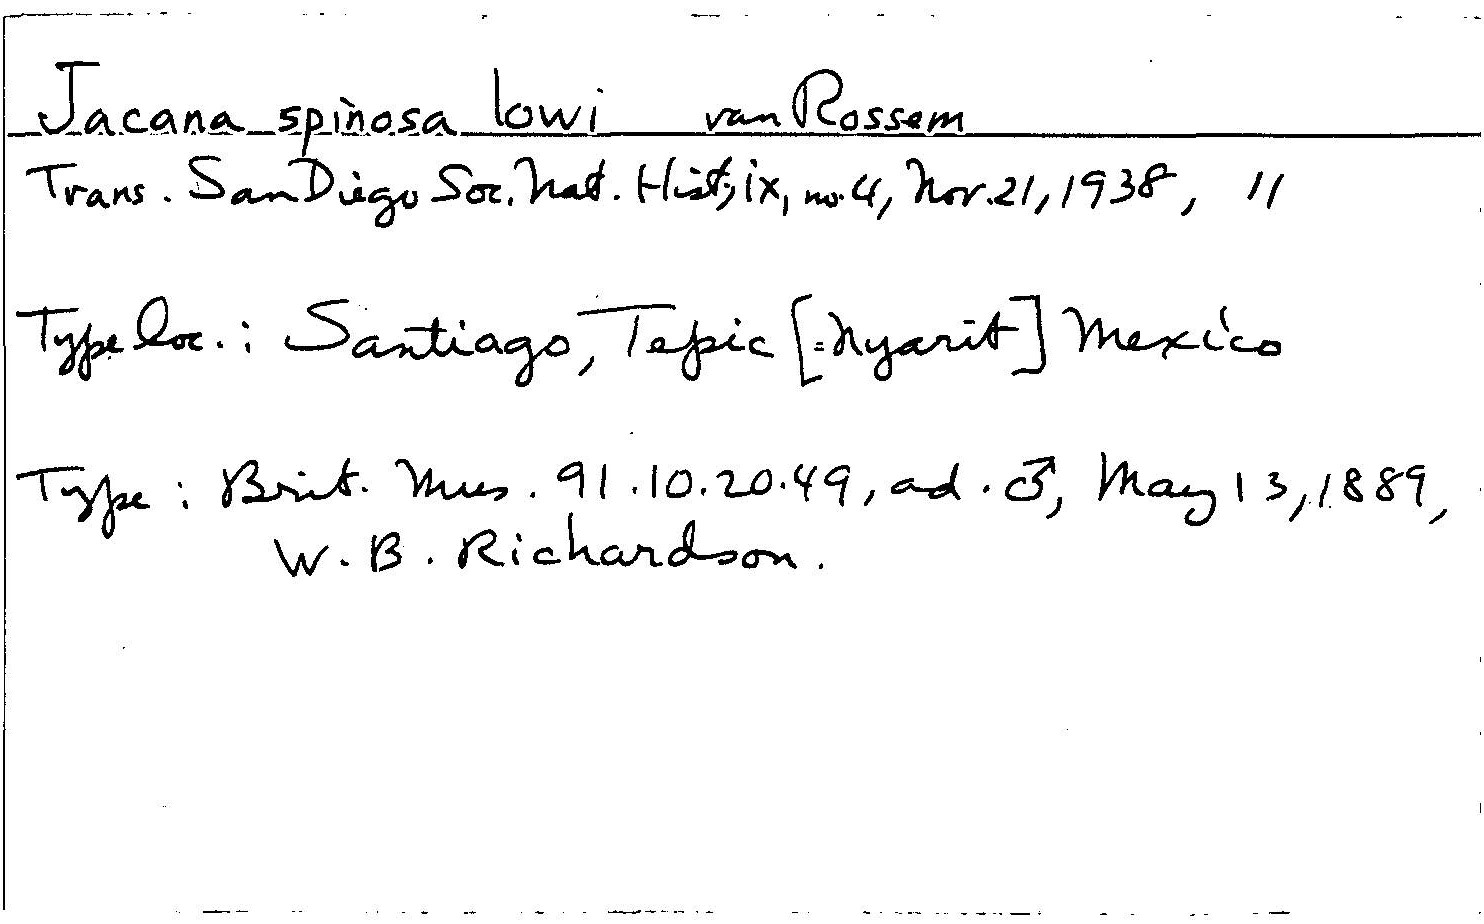 Jacana spinosa lowi van Rossem
Trans. San Diego Soc. Nat. Hist., ix, no. 4, Nov. 21, 1938, 11
Type loc.: Santiago, Tepic [=Nyarit] Mexico
Type: Brit. Mus. 91.10.20.49, ad. ♂, May 13, 1889,
W. B. Richardson.